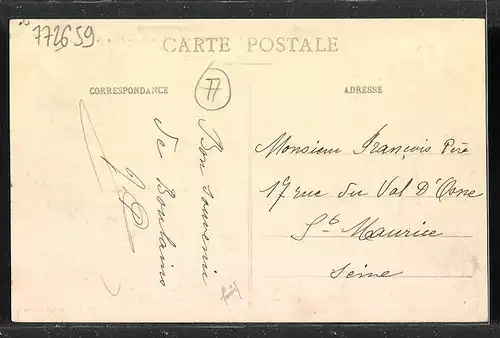 772659
CARTE POSTALE
CORRESPONDANCE
77
ADRESSE
Bon souvenir
de Boulains
J P
Monsieur François Père
17 rue du Val D'Osne
St Maurice
Seine